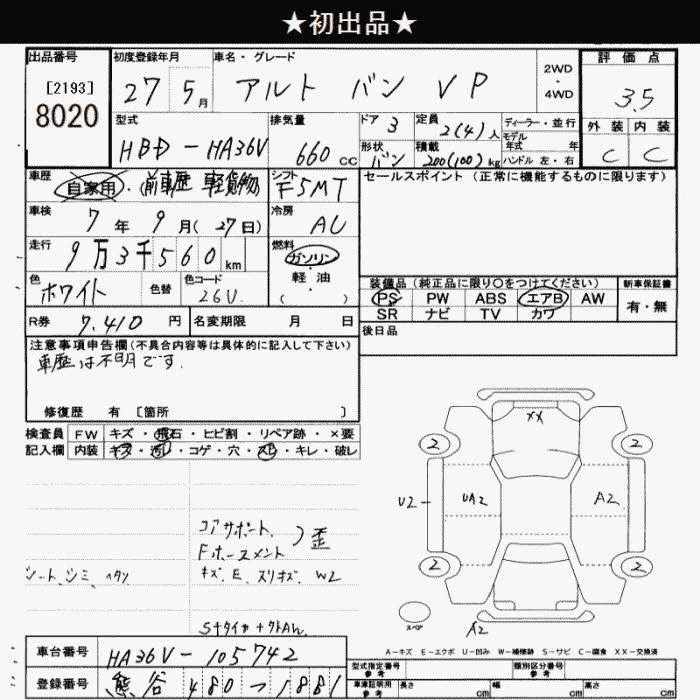 ★初出品★
出品番号
[2193]
8020
初度登録年月
27 5月
車名・グレード
アルト バン VP
2WD
・
4WD
評価点
3.5
外装 内装
C C
型式
HBD-HA36V
排気量
660 cc
ドア 3
形状
バン
定員
2(4)人
積載
200(100)kg
ディーラー・並行
モデル
年式 年
ハンドル 左・右
車歴
自家用・前車歴 軽貨物
シフト
F5MT
セールスポイント(正常に機能するものに限ります)
車検
7年 9月(27日)
冷房
AC
走行
9万3千560km
燃料
ガソリン
軽・油
( )
色
ホワイト
色替
色コード
26U
装備品(純正品に限り○をつけてください)
新車保証書
PS PW ABS エアB AW
SR ナビ TV カワ
有・無
R券 7.410円
名変期限 月 日
後日品
注意事項申告欄(不具合内容等は具体的に記入して下さい)
車歴は不明です.
修復歴 有 [箇所 ]
検査員
記入欄
FW キズ・飛石・ヒビ割・リペア跡・×要
内装 キズ・汚れ・コゲ・穴・スレ・キレ・破レ
XX
2 2
U2 UA2 A2
2 2
スペア
A2
コアサポート
Fホースメント
)歪
キズ、E、スリキズ、W2
シート、シミ、ヘタリ
Sタイヤ+
A-キズ E-エクボ U-凹み W-補修跡 S-サビ C-腐食 XX-交換済
車台番号
HA36V-105742
登録番号
熊谷 480 1881
型式指定番号
参考
類別区分番号
参考
車庫証明用
参考
長さ cm
幅 cm
高さ cm